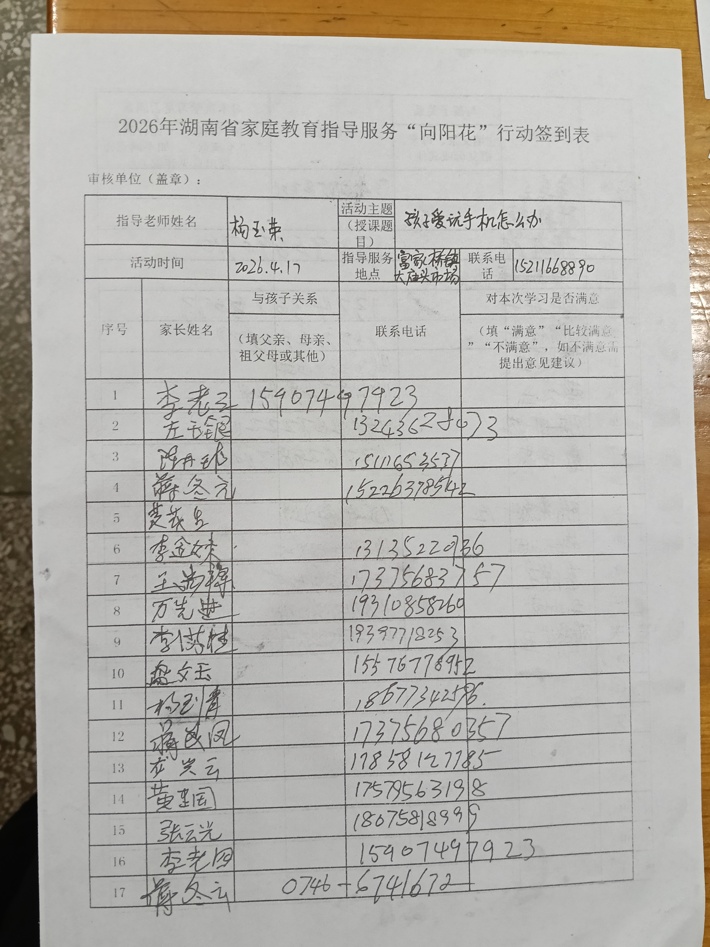 2026年湖南省家庭教育指导服务“向阳花”行动签到表
审核单位（盖章）：
指导老师姓名 杨玉荣 活动主题（授课题目） 孩子爱玩手机怎么办
活动时间 2026.4.17 指导服务地点 富家桥镇大庙头市场 联系电话 15211668890
序号 家长姓名 与孩子关系 联系电话 对本次学习是否满意
（填父亲、母亲、祖父母或其他） （填“满意”“比较满意”“不满意”，如不满意需提出意见建议）
1 李老 15907497923
2 左玉 13243628073
3 15111653537
4 蒋冬元 15226378542
5 黄茂生
6 李金妹 13135220936
7 王 17375683757
8 万先 19310858260
9 李 19397718253
10 盘文玉 15576778952
11 杨玉 18677342596
12 蒋 凤 17375680357
13 云 17858127785
14 黄 国 17579563198
15 张云光 18075818999
16 李老四 15907497923
17 蒋冬云 0746-6741672